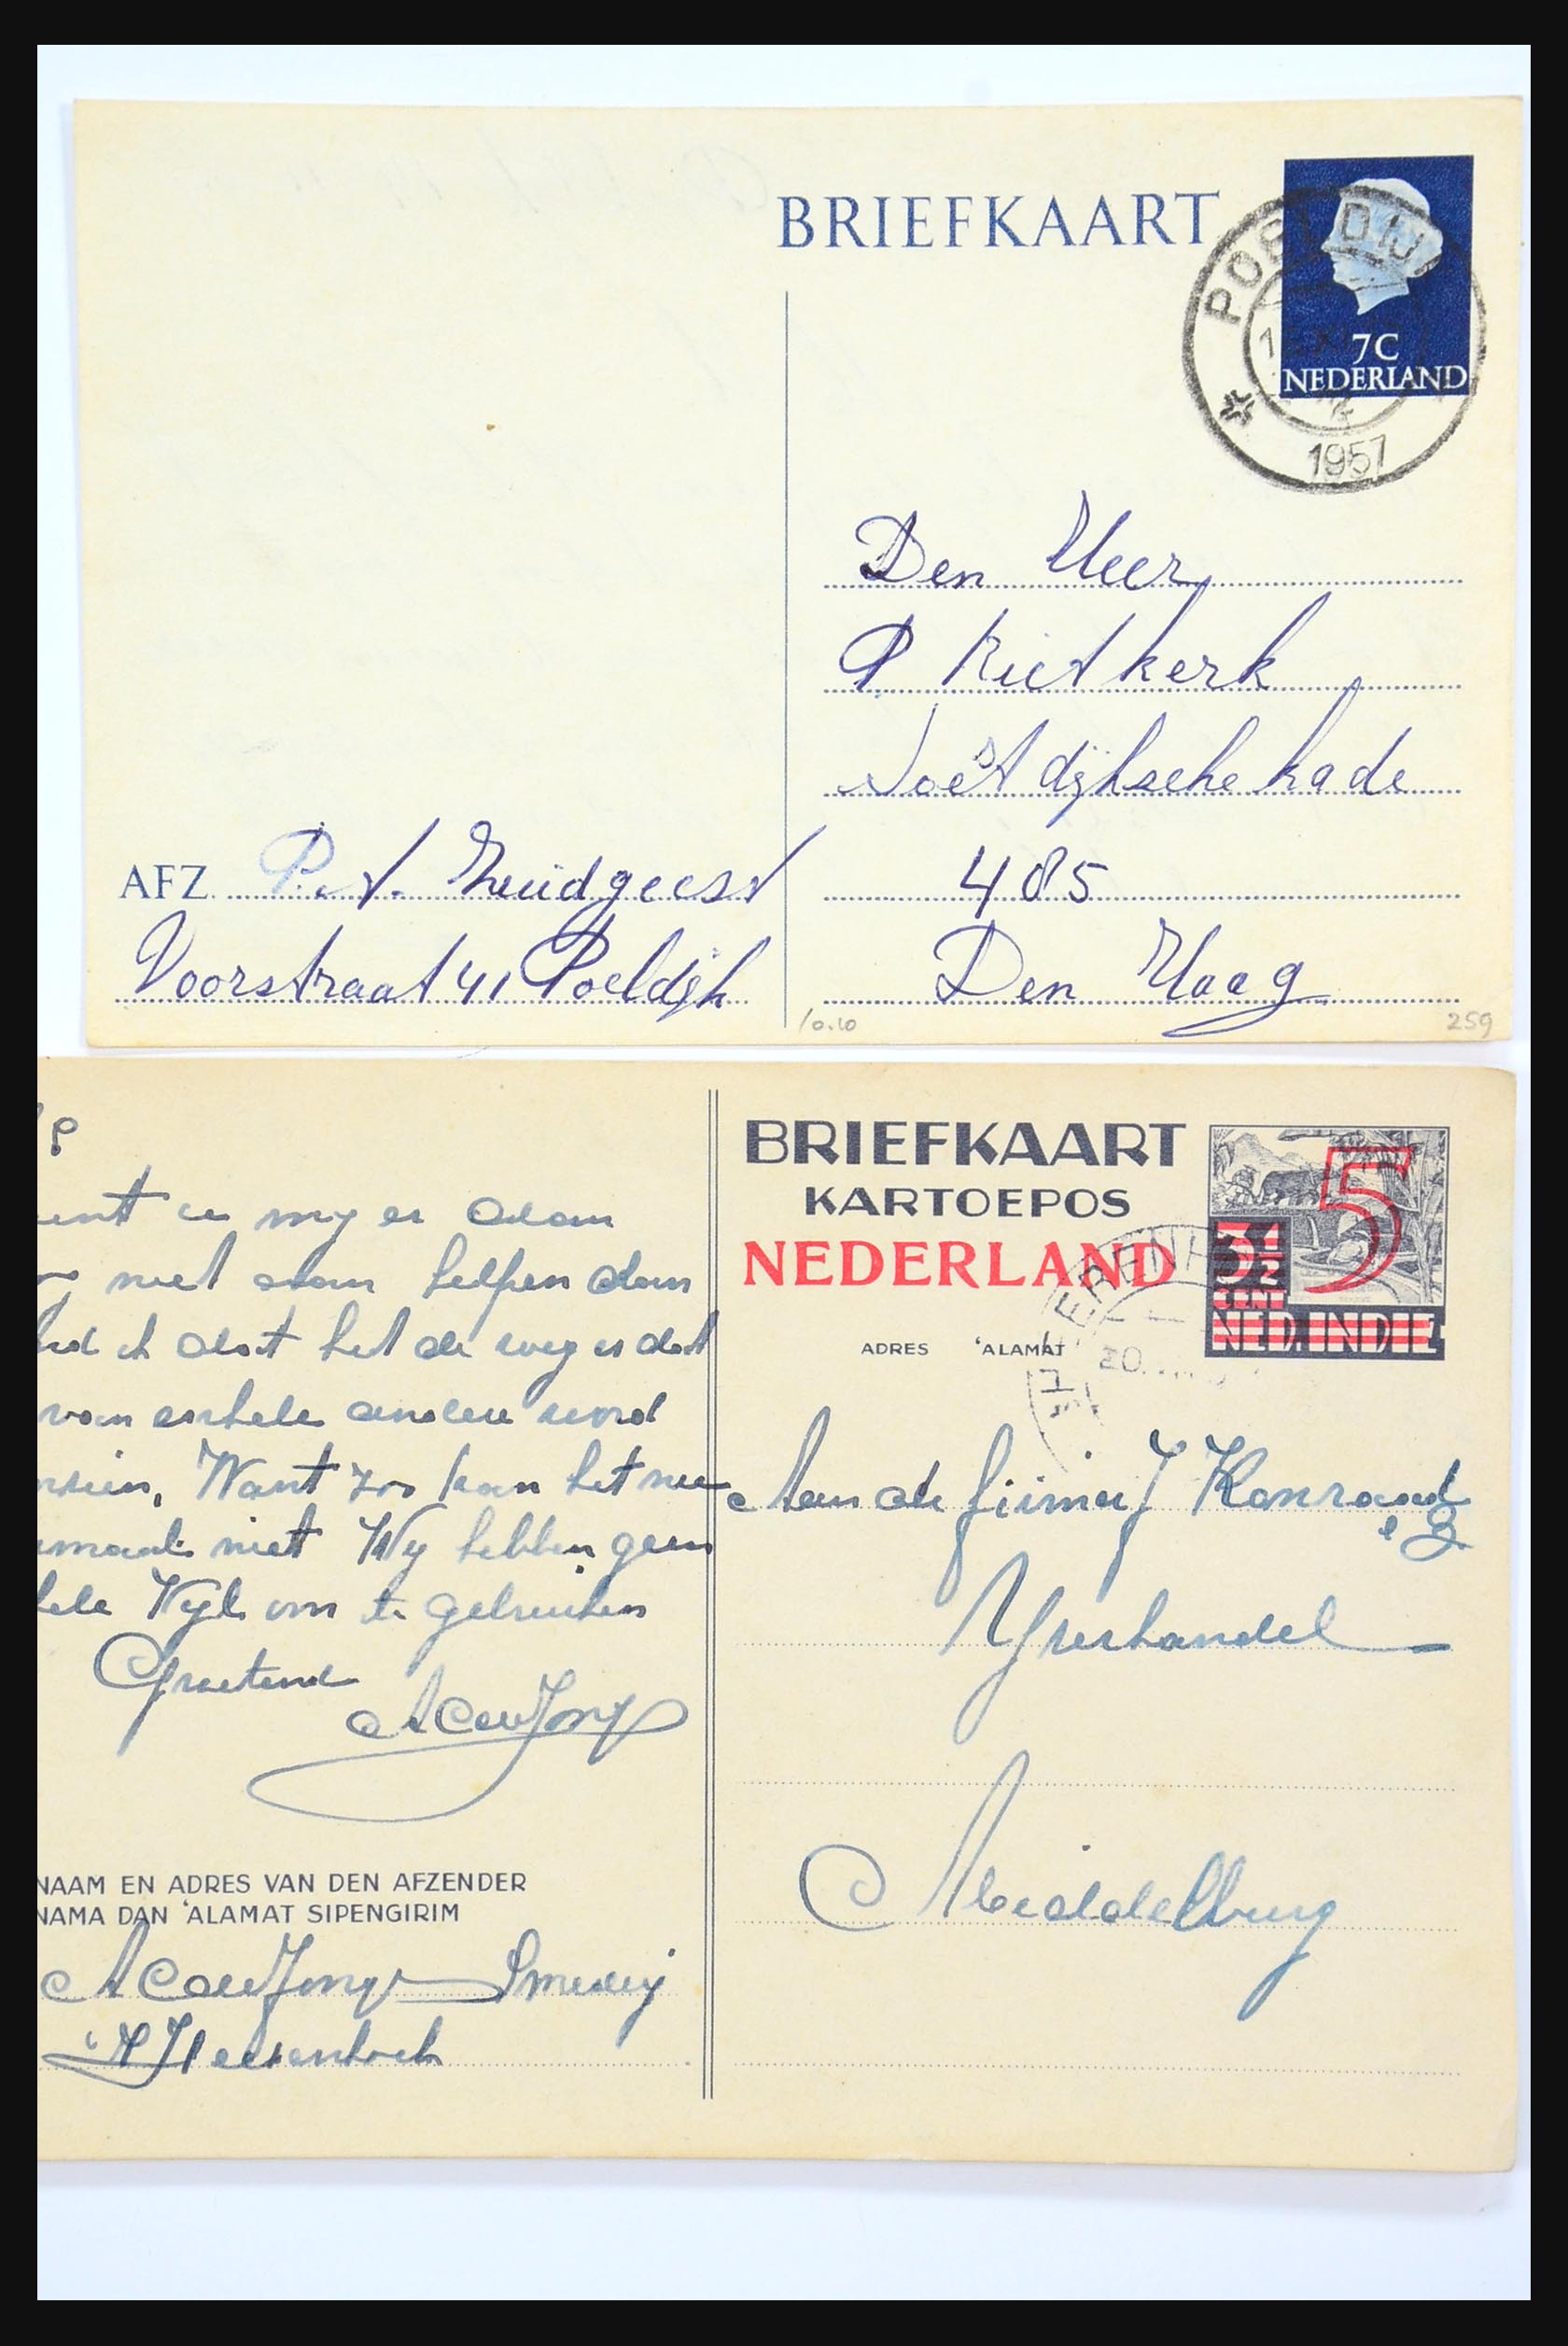 BRIEFKAART
POELDIJK
7C
NEDERLAND
1957
Den Heer
P Rietkerk
Soestdijksche kade
485
Den Haag
AFZ. P. v. Zuidgeest
Voorstraat 41 Poeldijk
10.10
259
BRIEFKAART
KARTOEPOS
NEDERLAND
5
3½
CENT
NED. INDIE
ADRES 'ALAMAT
20
u my er
niet helpen dan
het de weg is dat
van enkele andere word
Want zoo kan het
niet Wy hebben geen
om te gebruiken
Groetend
A C de Jonge
Aan de firma J Konraad
Yzerhandel
Middelburg
NAAM EN ADRES VAN DEN AFZENDER
NAMA DAN 'ALAMAT SIPENGIRIM
A C de Jonge Smedery
'S H Heerenhoek